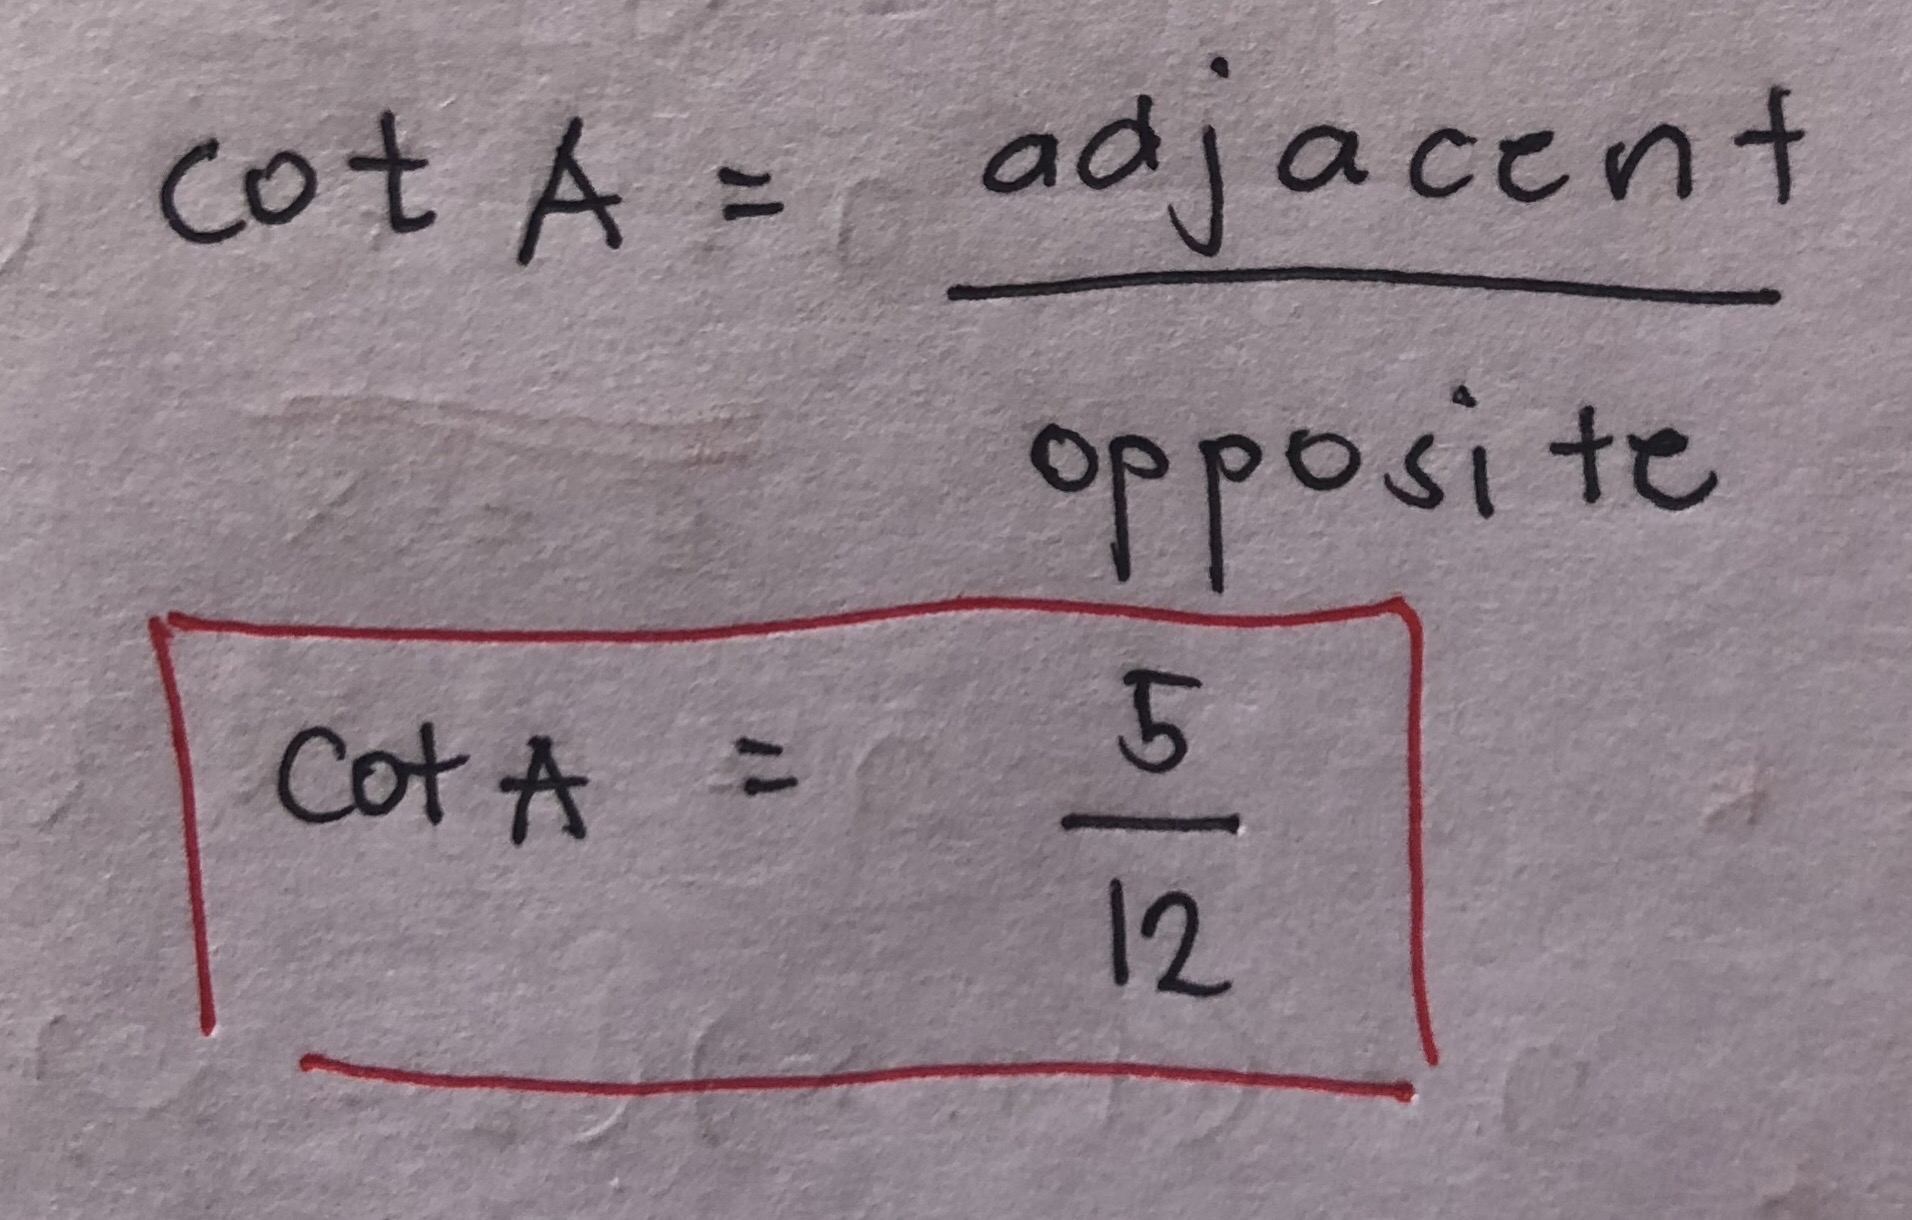 cot A = adjacent
opposite
Cot A = 5
12